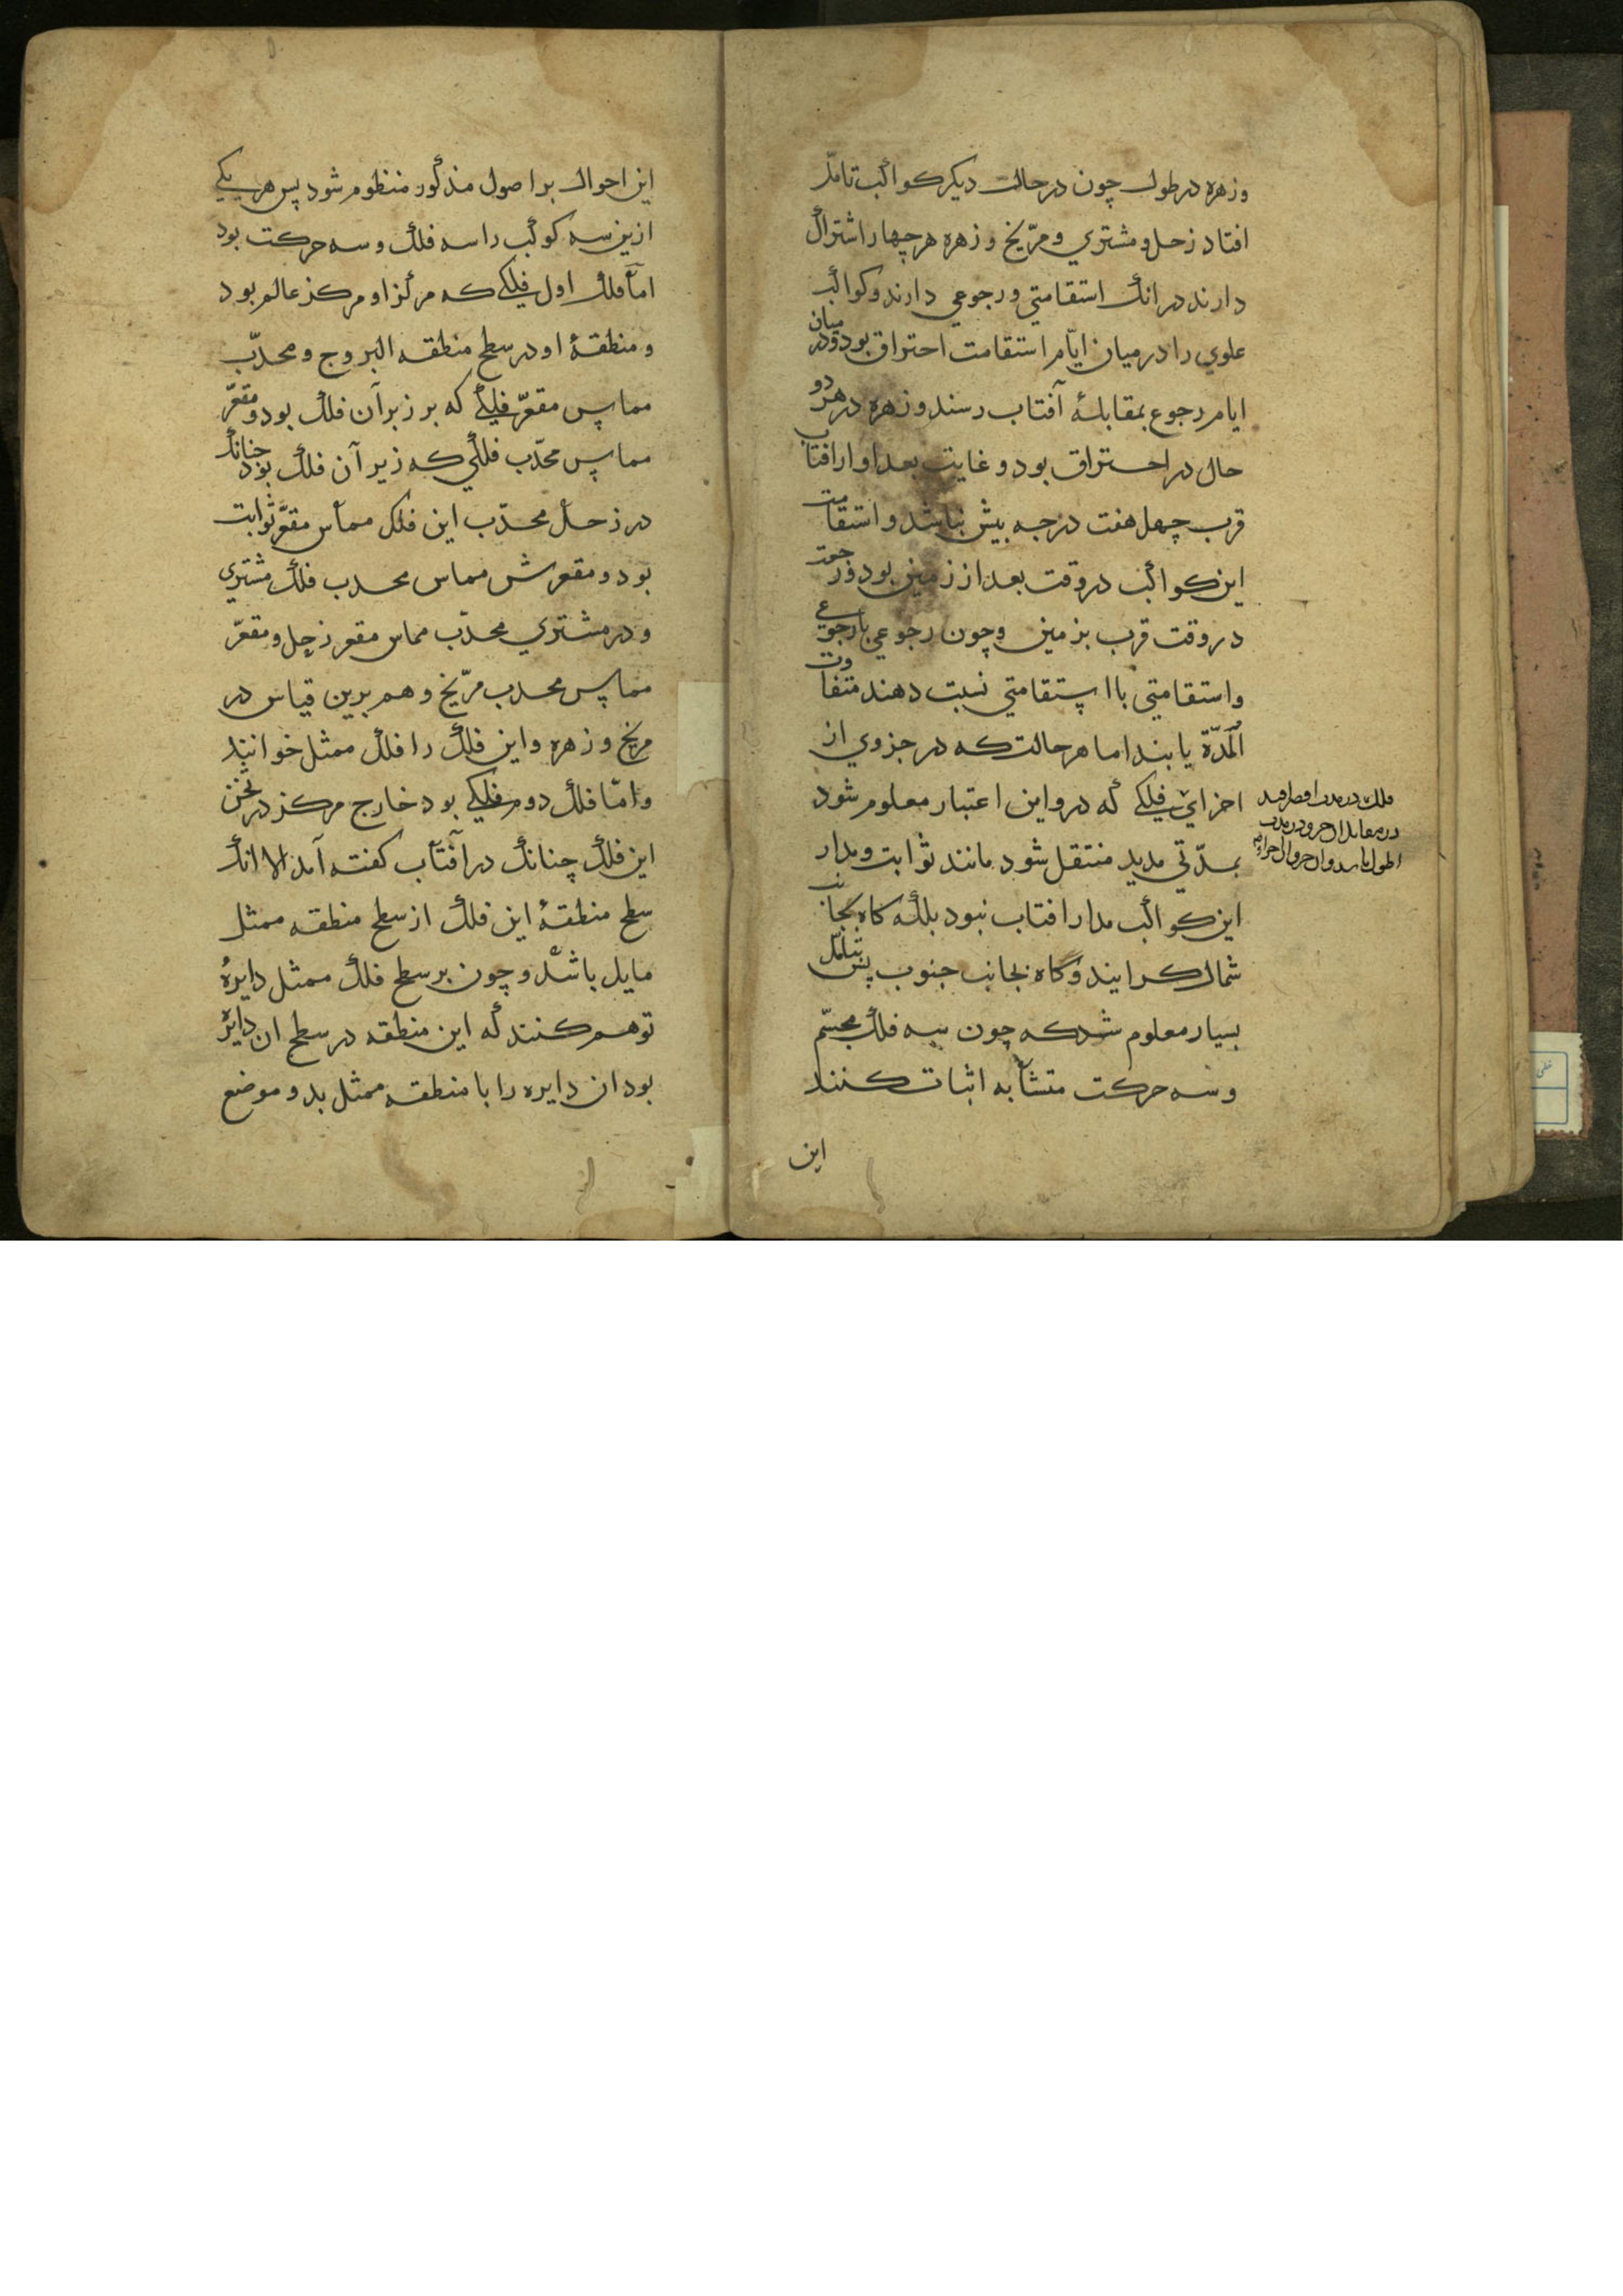 وزهره در طول چون در حالت دیکر کواکب تامل
افتاد زحل و مشتري و مرّیخ و زهره هر چهار اشتراک
دارند در انک استقامتي و رجوعي دارند و کواکب
علوي را در میان ایام استقامت احتراق بود و در میان
ایام رجوع بمقابلهٔ آفتاب رسند و زهره در هر دو
حال در احتراق بود و غایت بعد او از افتاب
قرب چهل هفت درجه بیش نباشد و استقامت
این کواکب در وقت بعد از زمین بود و رجعت
در وقت قرب بزمین و چون رجوعي با رجوعي
و استقامتي با استقامتي نسبت دهند متفاوت
المدّة یابند اما هر حالت که در جزوي از
اجزاي فلکي که درو این اعتبار معلوم شود
بمدّتي مدید منتقل شود مانند ثوابت و مدار
این کواکب مدار افتاب نبود بلکه کاه بجانب
شمال کرایند و کاه بجانب جنوب پس بتامّل
بسیار معلوم شد که چون سه فلک مجسّم
و سه حرکت متشابه اثبات کنند
این
این احوال بر اصول مذکور منظوم شود پس هر یکي
ازین سه کوکب را سه فلک و سه حرکت بود
امّا فلک اول فلکي که مرکز او مرکز عالم بود
و منطقهٔ او در سطح منطقه البروج و محدّب
مماس مقعّر فلکي که بر زبر آن فلک بود و مقعّر
مماس محدّب فلکي که زیر آن فلک بود چنانک
در زحل محدّب این فلک مماس مقعّر ثوابت
بود و مقعرش مماس محدب فلک مشتري
و در مشتري محدّب مماس مقعر زحل و مقعّر
مماس محدب مرّیخ و هم برین قیاس در
مریخ و زهره و این فلک را فلک ممثل خوانند
و امّا فلک دوم فلکي بود خارج مرکز در ثخن
این فلک چنانک در آفتاب کفته آمد الا انک
سطح منطقهٔ این فلک از سطح منطقه ممثل
مایل باشد و چون بر سطح فلک ممثل دایرهٔ
توهم کنند که این منطقه در سطح ان دایره
بود ان دایره را با منطقه ممثل بدو موضع